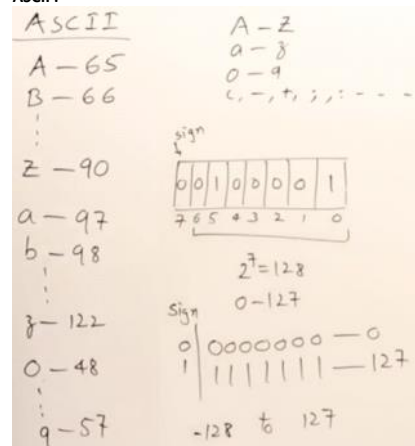 ASCII
A-65
B-66
Z-90
a-97
b-98
z-122
0-48
9-57
A-Z
a-z
0-9
(, -, +, ;, : - - - -
sign
0 0 1 0 0 0 0 1
7 6 5 4 3 2 1 0
2^7=128
0-127
Sign
0 0000000 — 0
1 1111111 — 127
-128 to 127